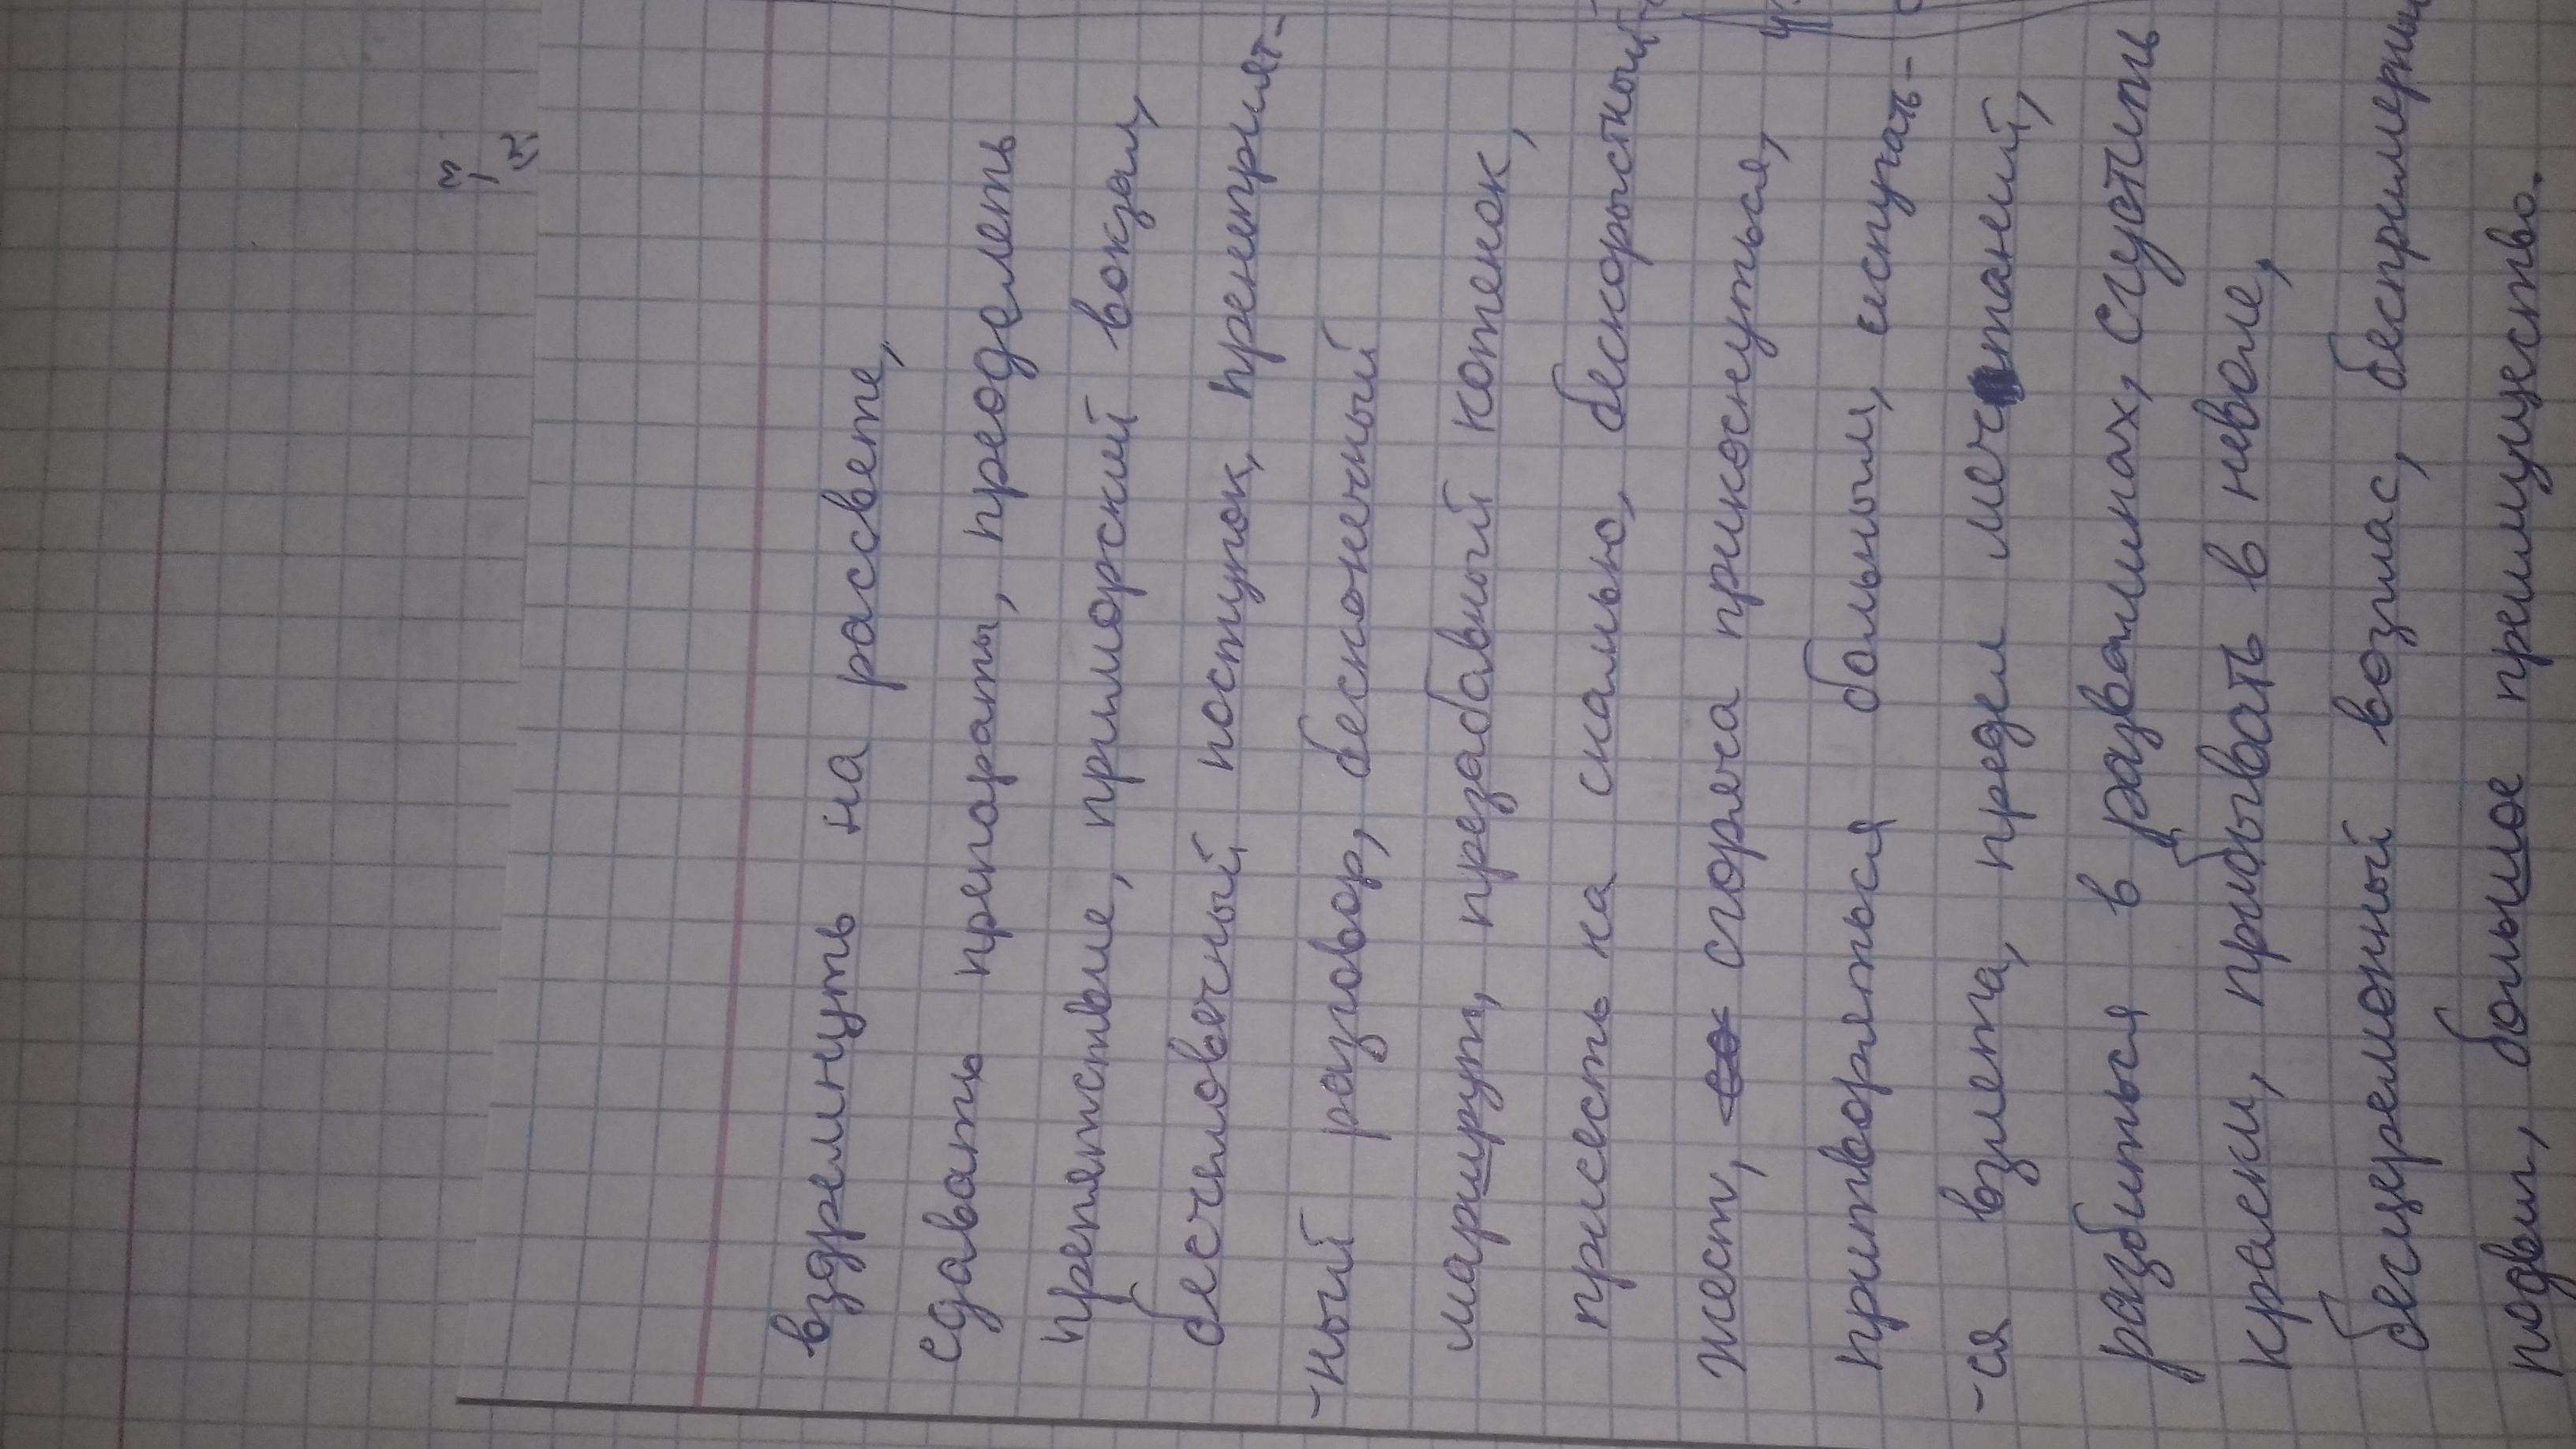 вздремнуть на рассвете,
сдавать препораты, преоделеть
препятствие, приморский вокзал,
бесчеловечный поступок, пренеприят-
-ный разговор, бесконечный
маршрут, презабавный котенок,
присесть на скамью, бескорыстный
жест, сгоряча прикоснуться,
притворяться больным, испугать-
-ся взлета, предел мечтаний,
разбиться в развалинах, сгустить
краски, прибывать в неволе,
бесцеремонный возглас, беспримерный
подвиг, большое преимущество.